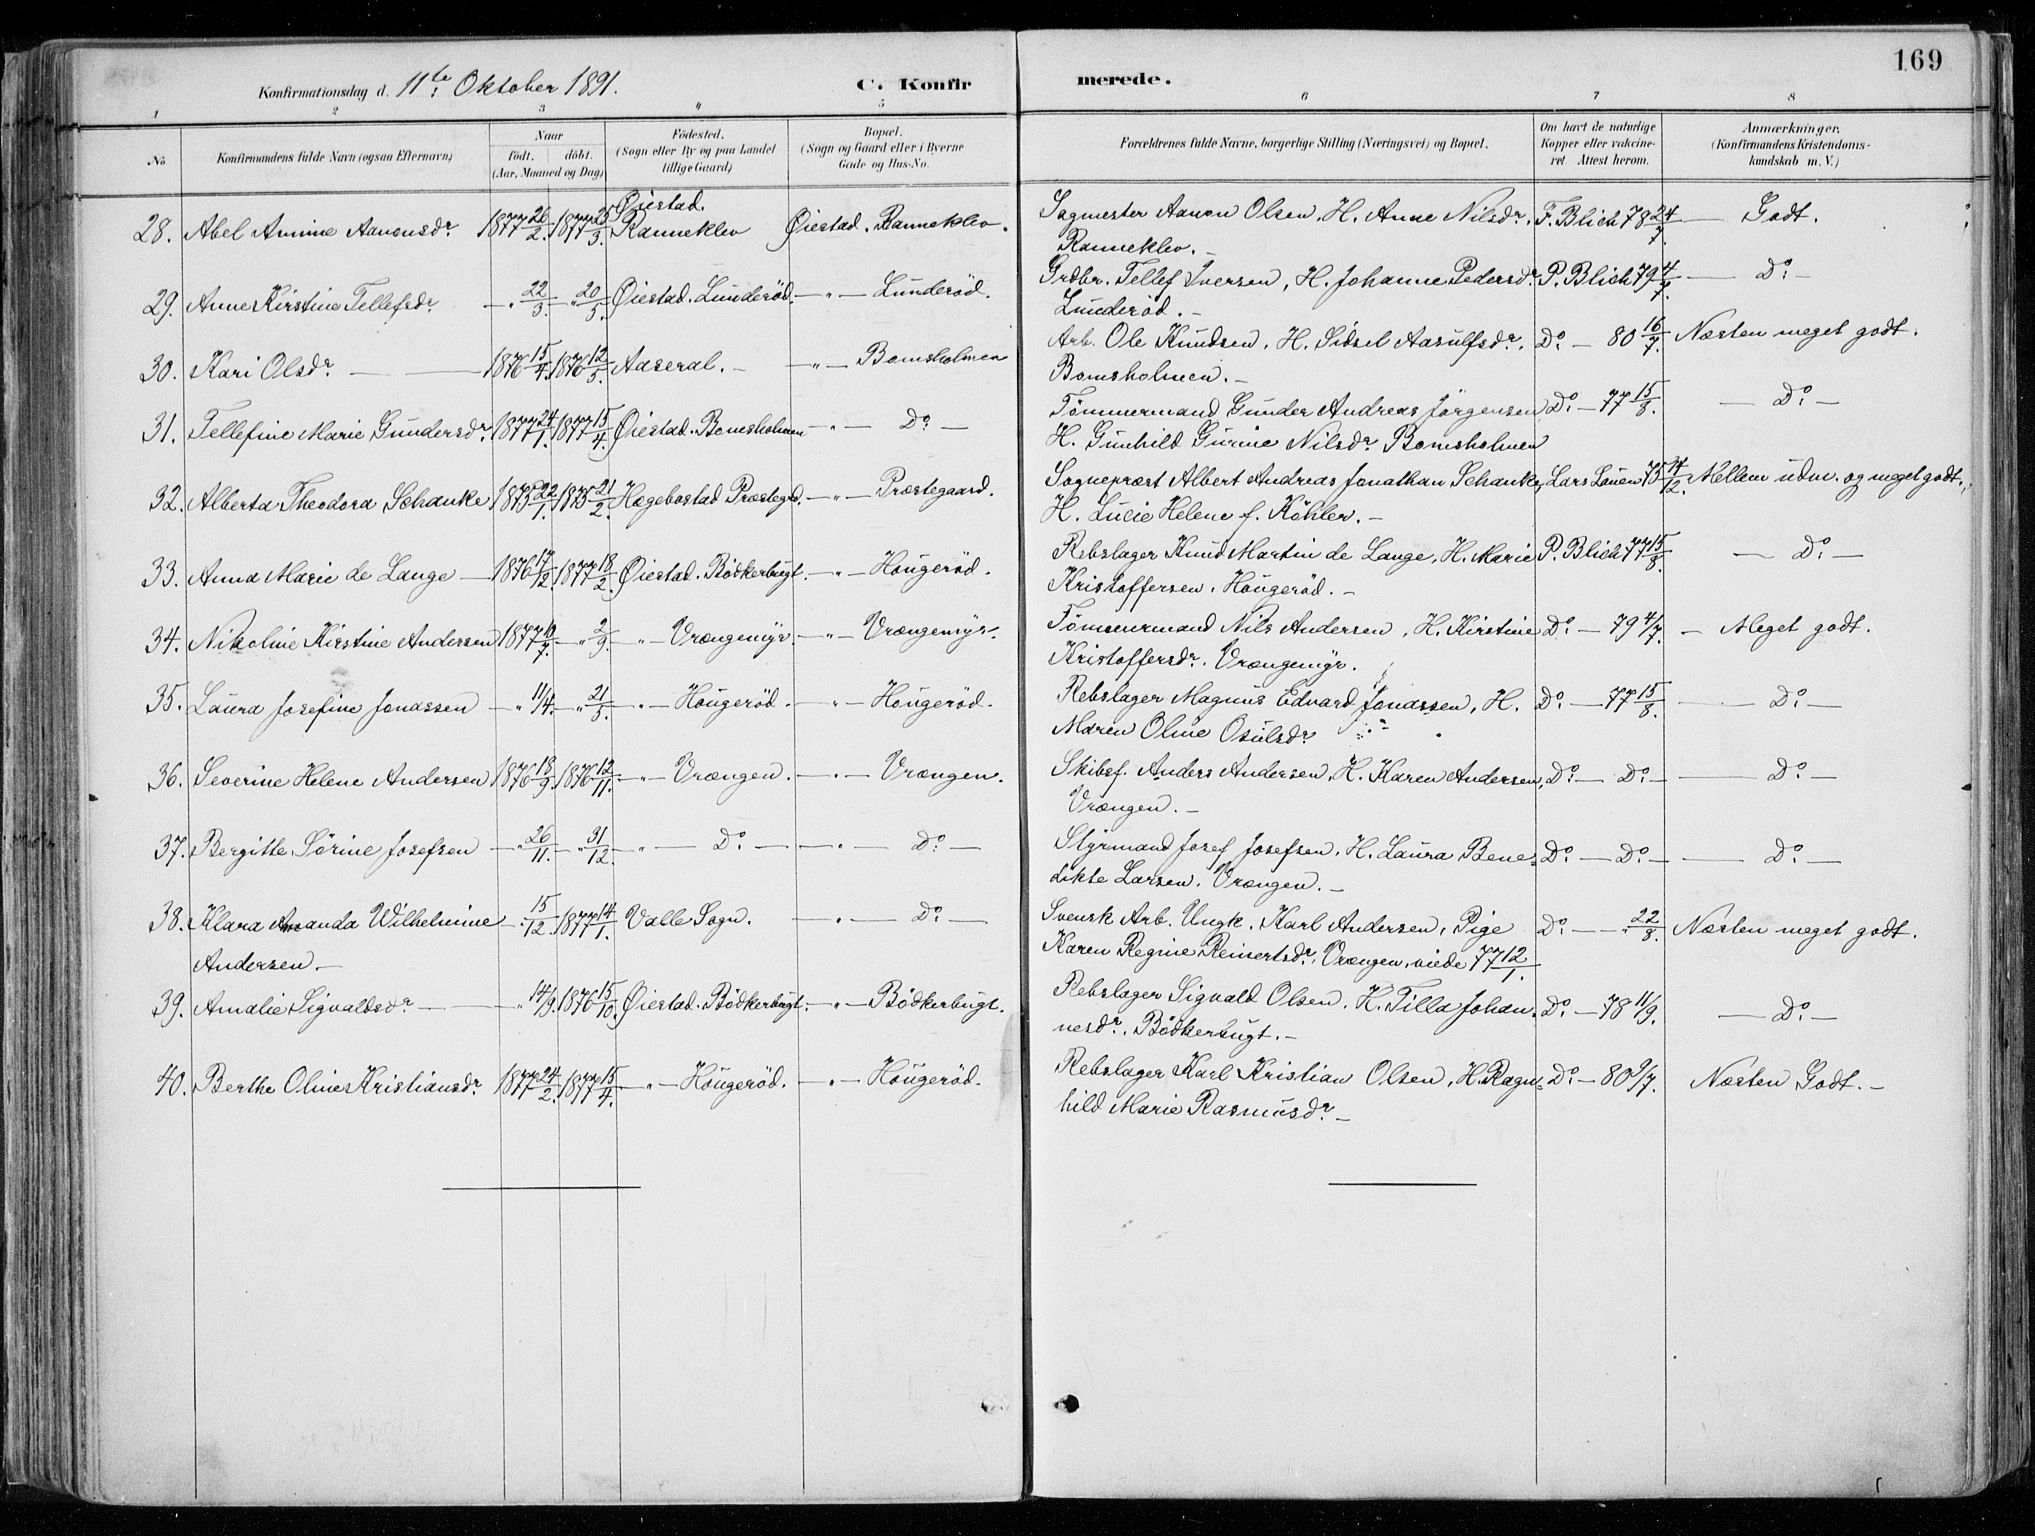 169
Konfirmationsdag d. 11te Oktober 1891.
C. Konfirmerede.
1 2 3 " 5 6 7 8
No Konfirmandens fulde Navn (ogsaa Efternavn) Naar födt. döbt. (Aar, Maaned og Dag) Födested. (Sogn eller By og paa Landet tillige Gaard) Bopæl. (Sogn og Gaard eller i Byerne Gade og Hus-No. Forældrenes fulde Navne, borgerlige Stilling (Næringsvei) og Bopæl. Om havt de naturlige Kopper eller vakcineret. Attest herom. Anmærkninger. (Konfirmandens Kristendomskundskab m. V.)
28. Abel Amine Aanonsdr 1877 26/2. 1877 25/3. Øiestad. Ranneklev Øiestad. Ranneklev. Sagmester Aanon Olsen, H. Anne Nilsdr, F. Blich 78 24/7. — Godt.
Ranneklev. -
29. Anne Kirstine Tellefsdr — " 22/3. — " 20/5. Øiestad. Lunderöd. — " — Lunderöd. Grdbr. Tellef Iversen, H. Johanne Pedersdr P. Blich 79 4/7. — Do. -
Lunderöd. -
30. Kari Olsdr. — 1876 15/4. 1876 12/5. Aaseral. - — " — Bomsholmen Arb. Ole Knudsen, H. Sidsel Aasulfsdr. Do. — 80 16/7. Næsten meget godt.
Bomsholmen. -
31. Tellefine Marie Gundersdr. 1877 24/1. 1877 15/4. Øiestad. Bomsholmen — " — Do — Tömmermand Gunder Andreas Jörgensen Do. — 77 15/8. — Do. —
H. Gunhild Gurine Nilsdr. Bomsholmen
32. Alberta Theodora Schanke 1875 22/1. 1875 21/2. Hægebostad Præstegd — " — Præstegaard. Sognepræst Albert Andreas Jonathan Schanke, Lars Lauen 75 14/12. Mellem udm. og meget godt.
H. Lucie Helene f. Köhler. -
33. Anna Marie de Lange — 1876 17/12. 1877 18/2. Øiestad. Bödkerbugt. — " — Hougeröd. Rebslager Knud Martin de Lange, H. Marie P. Blich 77 15/8. — Do. —
Kristoffersen, Hougeröd. -
34. Nikoline Kirstine Andersen 1877 10/7. — " 2/9. — " — Vrængemyr. — " — Vrængemyr. Tömmermand Nils Andersen, H. Kirstine Do. — 79 4/7. — Meget godt.
Kristoffersdr. Vrængemyr.
35. Laura Josefine Jonassen — " 11/4. — " 21/5. — " — Hougeröd. — " — Hougeröd. Rebslager Magnus Edvard Jonassen, H. Do. — 77 15/8. — Do. —
Maren Oline Osulsdr
36. Severine Helene Andersen 1876 18/9. 1876 12/11. — " — Vrængen. — " — Vrængen. Skibsf. Anders Andersen, H. Karen Andersen, Do. — Do. — — Do. —
Vrængen. -
37. Bergitte Sörine Josefsen — " 26/11. — " 31/12. — " — Do. — — " — Do. — Styrmand Josef Josefsen, H. Laura Bene- Do. — Do. — — Do. —
dikte Larsen. Vrængen. -
38. Klara Amanda Wilhelmine — " 15/12. 1877 14/1. Valle Sogn. — " — Do. — Svensk Arb. Ungk. Karl Andersen, Pige Do. — — " 22/8. Næsten meget godt.
Andersen. - Karen Regine Reinertsdr. Vrængen, viede 77 12/1.
39. Amalie Sigvaldsdr. — " 14/9. 1876 15/10. Øiestad. Bödkerbugt. — " — Bödkerbugt. Rebslager Sigvald Olsen, H. Tilla Johan- Do. — 78 11/9. — Do. —
nesdr. Bödkerbugt. -
40. Berthe Oline Kristiansdr. 1877 24/2. 1877 15/4. — " — Hougeröd. — " — Hougeröd. Rebslager Karl Kristian Olsen, H. Ragn- Do. — 80 9/7. Næsten Godt. -
hild Marie Rasmusdr. -